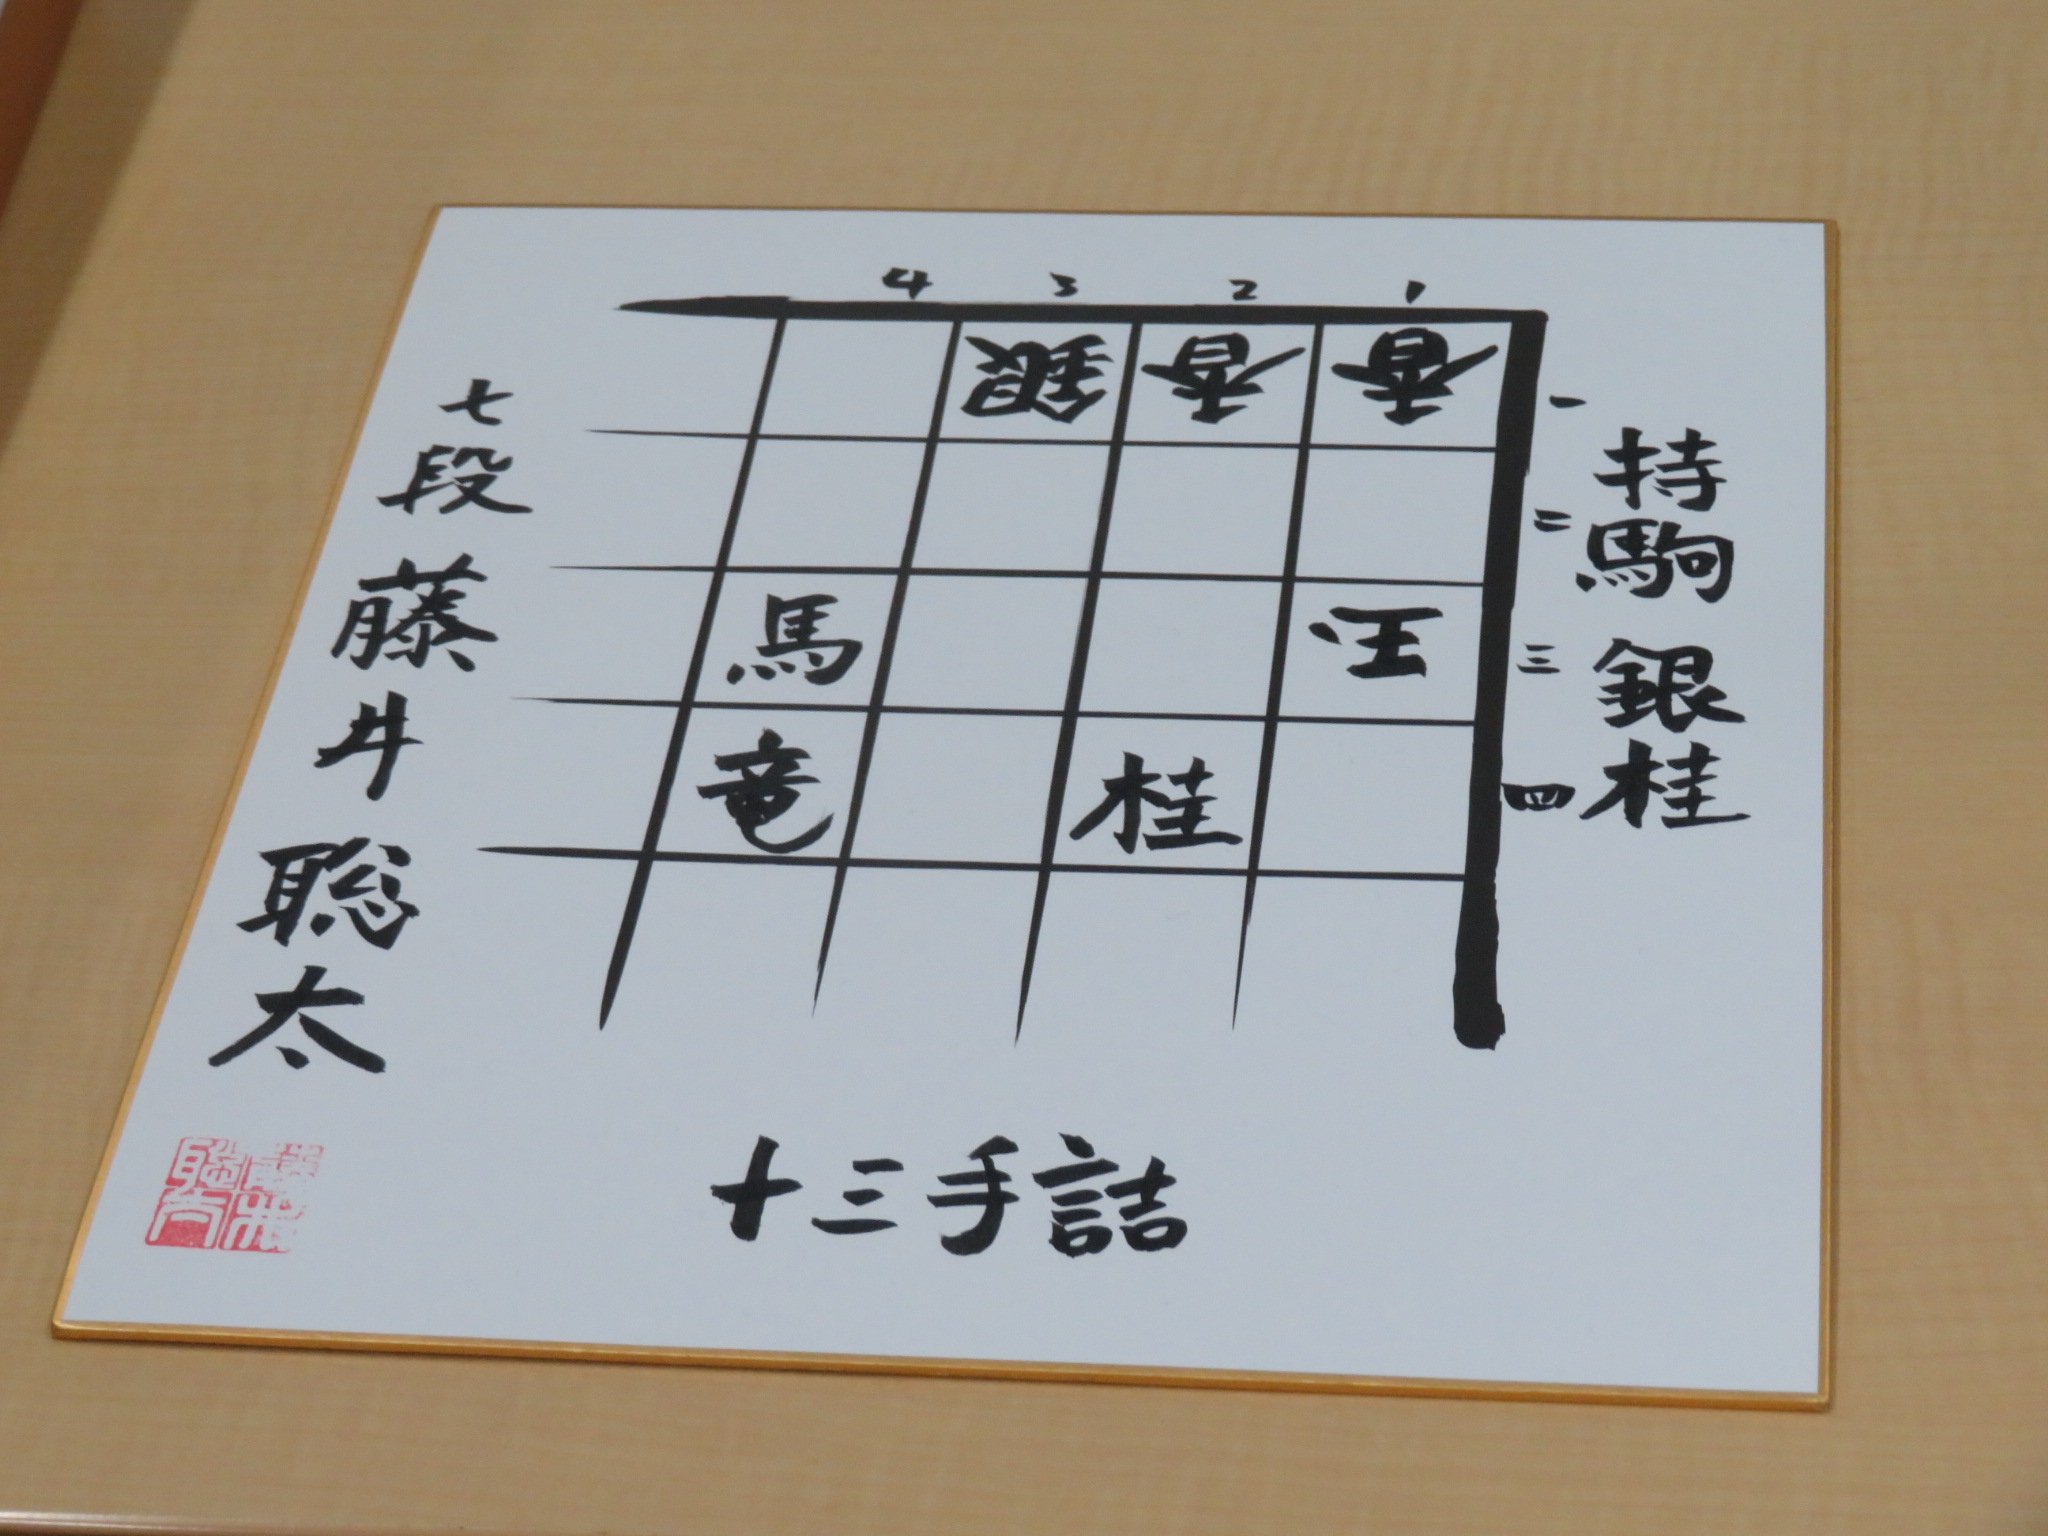 4 3 2 1
銀 香 香 一
二
馬 玉 三
竜 桂 四
持駒 銀桂
十三手詰
七段 藤井聡太